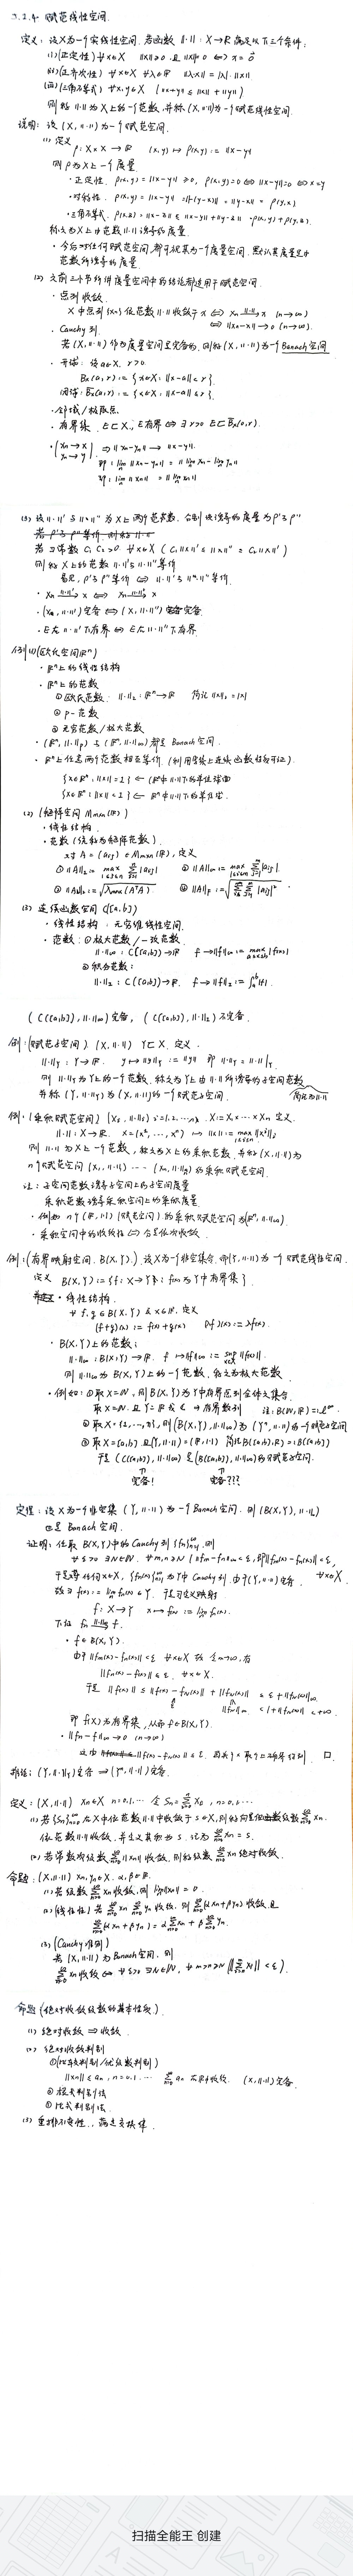 3.1.4 赋范线性空间.
定义: 设X为一个实线性空间. 若函数 ||·||: X→R 满足以下三个条件:
(i)(正定性) ∀x∈X ||x||≥0, 且 ||x||=0 ⟺ x=0⃗
(ii)(正齐次性) ∀x∈X ∀λ∈R ||λx||=|λ|·||x||
(iii)(三角不等式) ∀x,y∈X ||x+y|| ≤ ||x||+||y||
则称 ||·|| 为X上的一个范数, 并称 (X,||·||) 为一个赋范线性空间.
说明: 设 (X,||·||) 为一个赋范空间.
(1) 定义
ρ: X×X → R (x,y) ↦ ρ(x,y) := ||x-y||
则ρ为X上一个度量.
· 正定性. ρ(x,y)=||x-y||≥0, ρ(x,y)=0 ⟺ ||x-y||=0 ⟺ x=y
· 对称性. ρ(x,y)=||x-y||=||-(y-x)||=||y-x||=ρ(y,x)
· 三角不等式. ρ(x,z)=||x-z|| ≤ ||x-y||+||y-z||=ρ(x,y)+ρ(y,z).
称之为X上由范数||·||诱导的度量.
· 今后对任何赋范空间, 都可视其为一个度量空间, 默认其度量是由
范数所诱导的度量.
(2) 之前三个节所讲度量空间中的结论都适用于赋范空间.
· 点列收敛.
X中点列{xn}依范数||·||收敛于x ⟺ xn →||·|| x (n→∞)
⟺ ||xn-x||→0 (n→∞).
· Cauchy列.
若 (X,||·||) 作为度量空间是完备的, 则称 (X,||·||) 为一个 Banach空间
· 开球: 设a∈X, r>0.
Bx(a,r) := {x∈X: ||x-a||<r}.
闭球: B̄x(a,r) := {x∈X: ||x-a||≤r}.
· 邻域/极限点.
· 有界集. E⊂X, E有界 ⟺ ∃r>0 E⊂B̄x(0,r).
· { xn→x
yn→y } ⟹ ||xn-yn|| → ||x-y||.
即: lim ||xn-yn|| = ||lim xn - lim yn||
即: lim ||xn|| = ||lim xn||
(3) 设||·||'与||·||''为X上两个范数, 分别诱导的度量为ρ'与ρ''
若ρ'与ρ''等价, 则称||·||
若∃常数 C1 C2>0 ∀x∈X (C1||x||' ≤ ||x||'' ≤ C2||x||')
则称X上的范数||·||'与||·||''等价
易见, ρ'与ρ''等价 ⟺ ||·||'与||·||''等价.
· xn →||·||' x ⟺ xn →||·||'' x
· (X,||·||') 完备 ⟺ (X,||·||'') 完备.
· E在||·||'下有界 ⟺ E在||·||''下有界.
例 (1)(欧氏空间R^n)
· R^n上的线性结构
· R^n上的范数
① 欧氏范数: ||·||2: R^n→R 简记 ||x||2=|x|
② p-范数
③ 无穷范数/极大范数
· (R^n,||·||p) 与 (R^n,||·||∞) 都是Banach空间.
· R^n上任意两个范数相互等价. (利用紧集上连续函数性质可证).
{x∈R^n: ||x||=1} ← R^n中||·||下的单位球面
{x∈R^n: ||x||<1} ← R^n中||·||下的单位球.
(2) (矩阵空间 Mm×n(R))
· 线性结构.
· 范数 (统称为矩阵范数).
对 A=(aij)∈Mm×n(R), 定义
① ||A||1 := max Σ|aij| ② ||A||∞ := max Σ|aij|.
③ ||A||2 := √λmax(AᵀA) ④ ||A||F := √ΣΣ|aij|².
(3) 连续函数空间 C([a,b])
· 线性结构: 无穷维线性空间.
· 范数: ① 极大范数/一致范数
||·||∞: C([a,b])→R f→||f||∞:= max |f(x)|
② 积分范数:
||·||1: C([a,b])→R. f→||f||1:= ∫|f|.
(C([a,b]),||·||∞) 完备, (C([a,b]),||·||1) 不完备.
例: (赋范子空间) (X,||·||) Y⊂X. 定义
||·||Y: Y→R. y↦||y||Y := ||y|| 即 ||·||Y=||·|| |Y
则||·||Y为Y上的一个范数, 称之为Y上由||·||所诱导的子空间范数
并称 (Y,||·||Y) 为 (X,||·||) 的一个赋范子空间. 简记为||·||
例: (乘积赋范空间) (Xi,||·||i) i=1,2,…,n. X:=X1×…×Xn 定义.
||·||: X→R. x=(x¹,…,xⁿ) ↦ ||x||:= max ||xⁱ||i
则||·||为X上一个范数, 称之为X上的乘积范数. 并称 (X,||·||) 为
n个赋范空间 (X1,||·||1) … (Xn,||·||n) 的乘积赋范空间.
注: 子空间范数诱导子空间上的子空间度量
乘积范数诱导乘积空间上的乘积度量.
· 例如 n个 (R,|·|) (赋范空间) 的乘积赋范空间为 (R^n,||·||∞).
· 乘积空间中的收敛性 ⟺ 分量依次收敛.
例: (有界映射空间. B(X,Y)) 设X为一个非空集合, (Y,||·||) 为一个赋范线性空间.
定义 B(X,Y) := {f: X→Y | f(X)为Y中有界集}.
· 线性结构.
∀f,g∈B(X,Y) & λ∈R, 定义
(f+g)(x) := f(x)+g(x) (λf)(x) := λf(x).
· B(X,Y)上的范数:
||·||∞: B(X,Y)→R. f↦||f||∞:= sup ||f(x)||.
则||·||∞为B(X,Y)上的一个范数, 称之为极大范数.
· 例如: ① 取X=N, 则B(X,Y)为Y中有界点列全体之集合.
取X=N 且Y=R或C → 有界数列 注: B(N,R)=:l^∞
② 取X={1,…,n}, 则 (B(X,Y),||·||∞) 为 (Y^n,||·||) 的一个赋范空间
③ 取X=[a,b] 且 (Y,||·||)=(R,|·|) 简记B([a,b],R)=:B([a,b])
于是 (C([a,b]),||·||∞) 是 (B([a,b]),||·||∞) 的赋范子空间.
完备! 完备???
定理: 设X为一个非空集 (Y,||·||) 为一个Banach空间. 则 (B(X,Y),||·||∞)
也是Banach空间.
证明: 任取B(X,Y)中的Cauchy列{fn}, 则
∀ε>0 ∃N∈N. ∀m,n≥N (||fm-fn||∞<ε, 即||fm(x)-fn(x)||<ε, ∀x∈X.
于是对任何x∈X, {fn(x)}为Y中Cauchy列. 由于 (Y,||·||) 完备.
故∃ f(x) := lim fn(x)∈Y. 于是可定义映射.
f: X→Y x↦f(x) := lim fn(x).
下证 fn →||·||∞ f.
· f∈B(X,Y).
由于||fm(x)-fn(x)||<ε ∀x∈X 故令m→∞, 有
||f(x)-fn(x)||≤ε. ∀x∈X.
于是 ||f(x)|| ≤ ||f(x)-fN(x)||+||fN(x)|| ≤ ε+||fN||∞
<1+||fN||∞<+∞.
即f(X)为有界集, 从而f∈B(X,Y).
· ||fn-f||∞→0 (n→∞)
这由||f(x)-fn(x)||≤ε. 两边关于x取上确界得到. □.
推论: (Y,||·||Y) 完备 ⟹ (Y^n,||·||) 完备.
定义: (X,||·||) xn∈X n=0,1,… 令 Sn=Σxk, n=0,1,…
(1) 若{Sn}在X中依范数||·||收敛于s∈X, 则称级数Σxn.
依范数||·||收敛, 并定义其和为s, 记为Σxn=s.
(2) 若常数项级数Σ||xn||收敛, 则称级数Σxn绝对收敛.
命题: (X,||·||) xn,yn∈X. α,β∈R.
(1) 若级数Σxn收敛, 则 lim||xn||=0.
(2) (线性性) 若Σxn Σyn收敛, 则Σ(αxn+βyn)收敛且
Σ(αxn+βyn)=αΣxn+βΣyn.
(3) (Cauchy准则)
若 (X,||·||) 为Banach空间, 则
Σxn收敛 ⟺ ∀ε>0 ∃N∈N, ∀m>n≥N (||Σxk||<ε).
命题 (绝对收敛级数的基本性质).
(1) 绝对收敛 ⟹ 收敛.
(2) 绝对收敛判别
① (比较判别/优级数判别)
||xn||≤an, n=0,1,… Σan在R中收敛. (X,||·||) 完备.
② 根式判别法
③ 比式判别法.
(3) 重排不变性, 满足交换律.
扫描全能王 创建